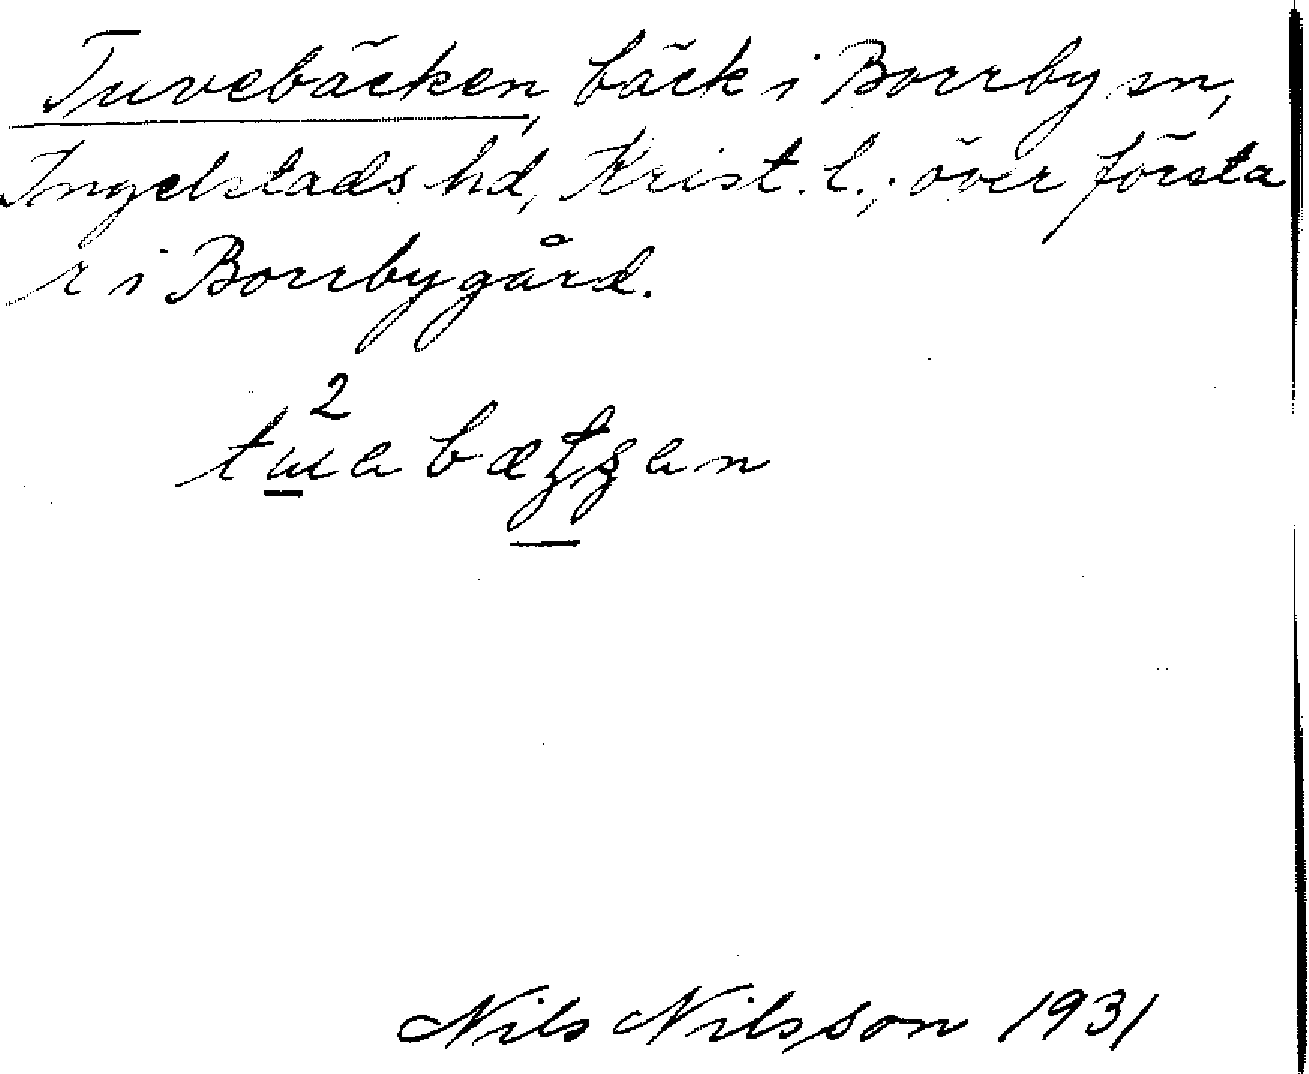 Tuvebäcken, bäck i Borrby sn,
Ingelstads hd, Krist. l.; över första
r i Borrbygård.
2
Nils Nilsson 1931